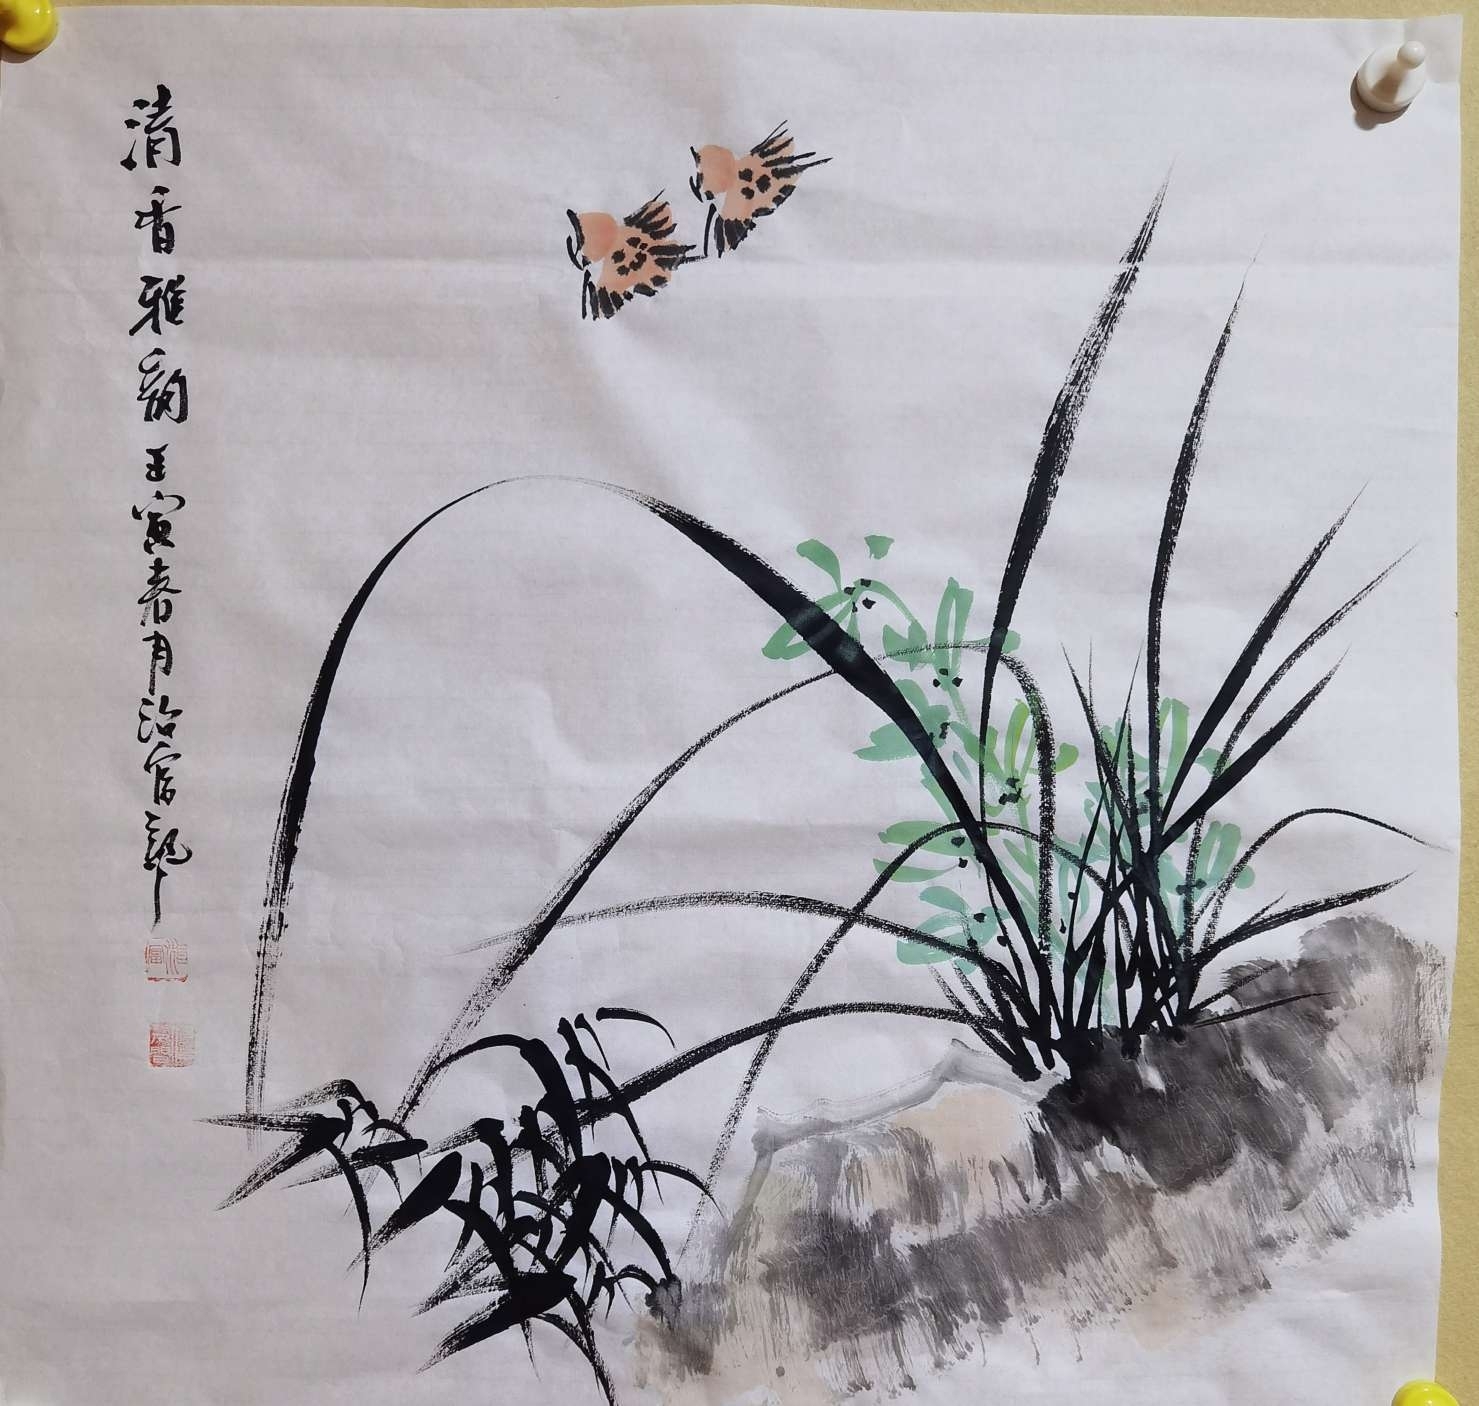 清香雅韵壬寅春月治富